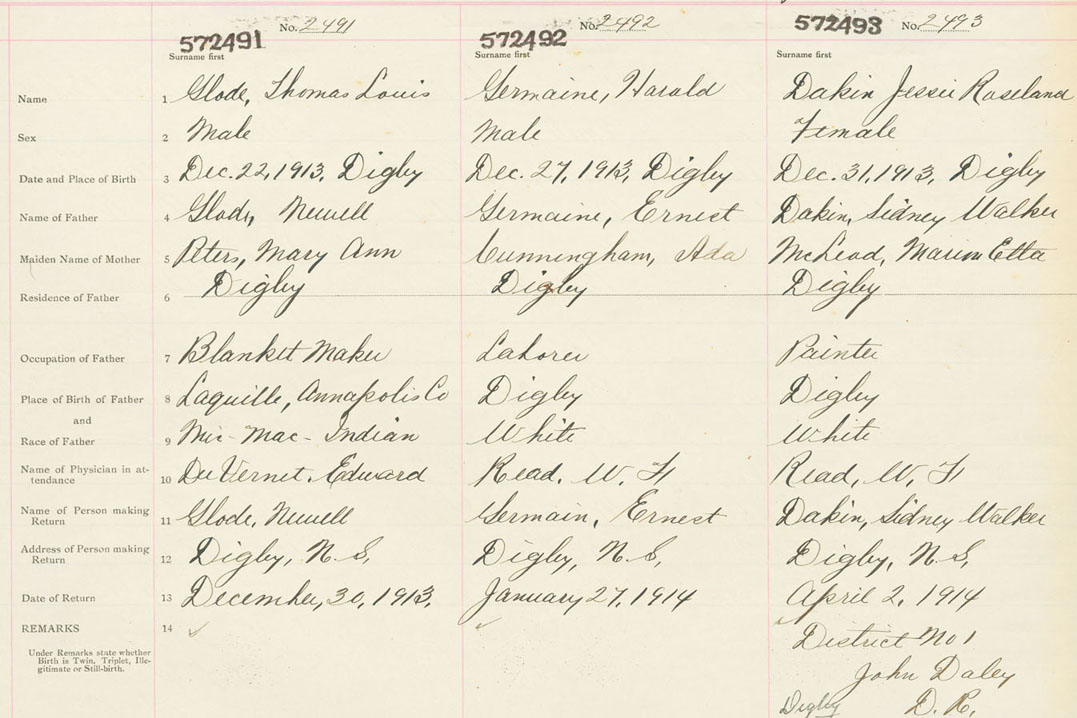 No. 2491 No. 2492 No. 2493
572491 572492 572493
Surname first Surname first Surname first
Name 1 Glode, Thomas Louis Germaine, Harold Dakin Jessie Roseland
Sex 2 Male Male Female
Date and Place of Birth 3 Dec. 22, 1913, Digby Dec. 27, 1913, Digby Dec. 31, 1913, Digby
Name of Father 4 Glode, Newell Germaine, Ernest Dakin, Sidney Walker
Maiden Name of Mother 5 Peters, Mary Ann Cunningham, Ada McLeod, Marion Etta
Residence of Father 6 Digby Digby Digby
Occupation of Father 7 Blanket Maker Laborer Painter
Place of Birth of Father 8 Laquille, Annapolis Co Digby Digby
and
Race of Father 9 Mic-Mac-Indian White White
Name of Physician in at-
tendance 10 DuVernet, Edward Read, W. F Read, W. F
Name of Person making
Return 11 Glode, Newell Germain, Ernest Dakin, Sidney Walker
Address of Person making
Return 12 Digby, N.S, Digby, N.S, Digby, N.S,
Date of Return 13 December, 30, 1913, January 27, 1914 April 2, 1914
REMARKS 14 District No 1
Under Remarks state whether
Birth is Twin, Triplet, Ille-
gitimate or Still-birth.
John Daley
Digby D. R.